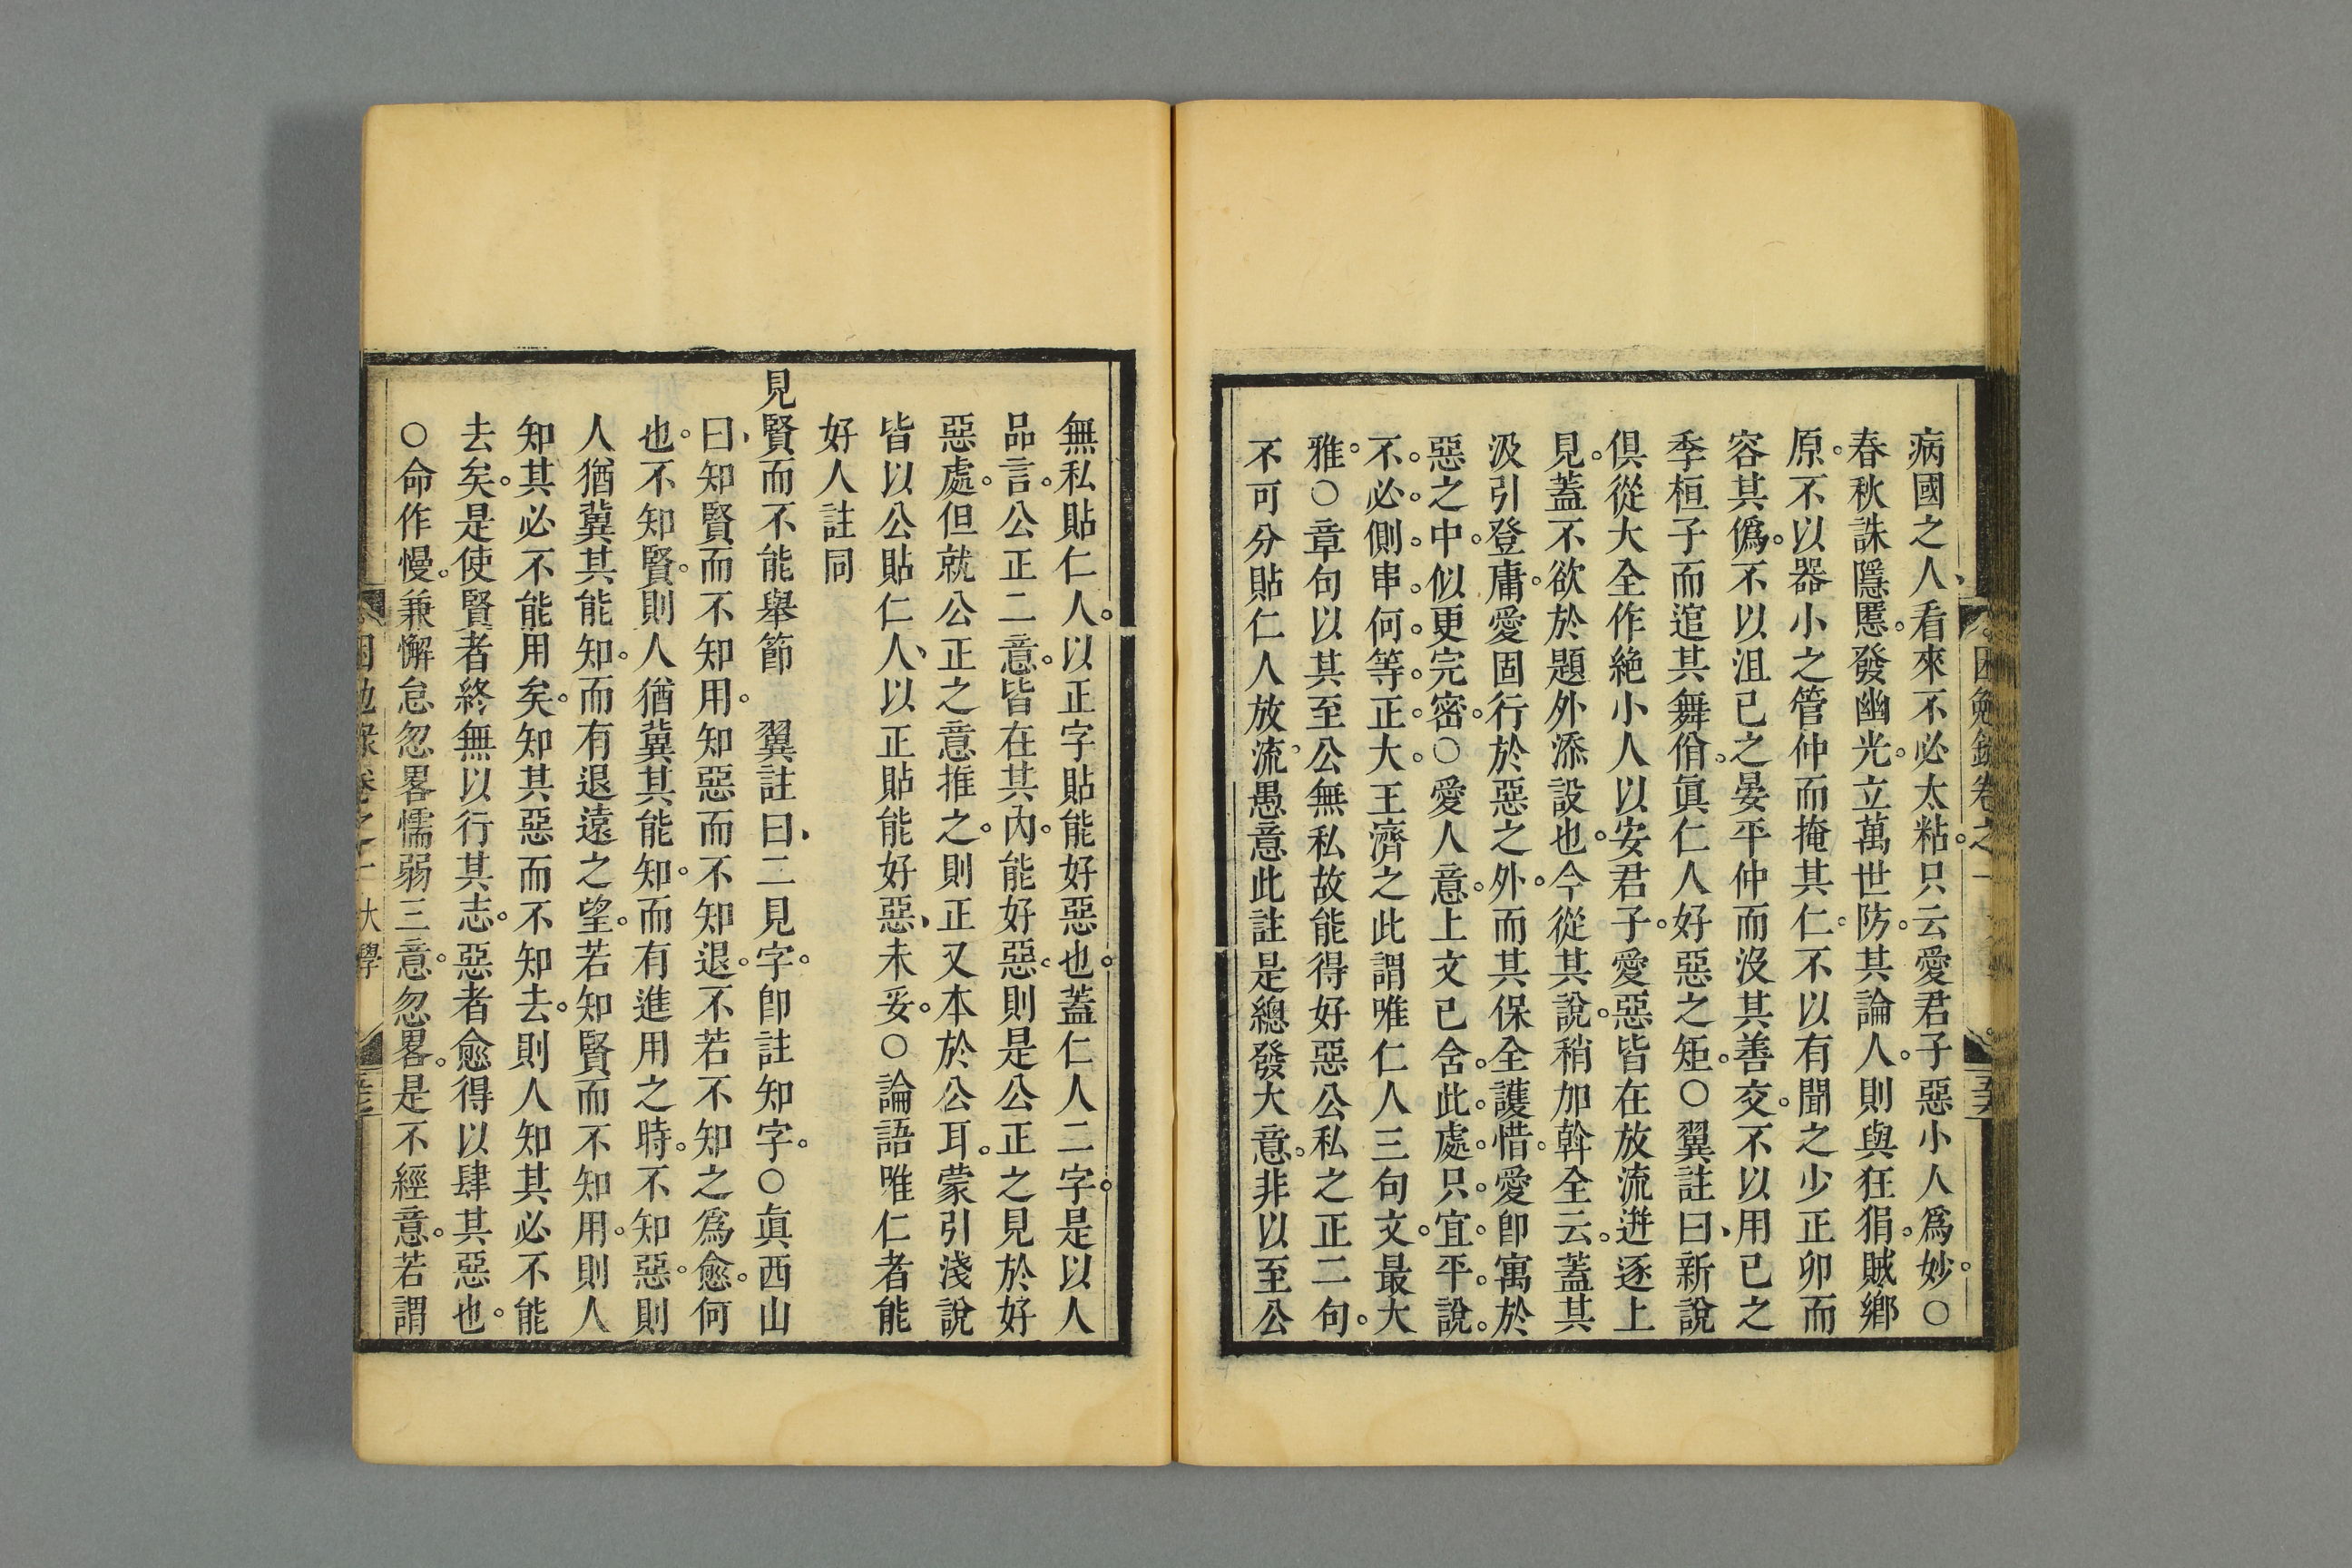 病國之人、看來不必太粘。只云愛君子惡小人爲妙。○
春秋誅隱慝。發幽光。立萬世防。其論人。則與狂狷。賊鄉
原。不以器小之管仲而掩其仁。不以有聞之少正卯而
容其僞。不以沮已之晏平仲而沒其善交。不以用已之
季桓子而逭其舞佾。眞仁人好惡之矩。○翼註曰、新說
俱從大全作絶小人以安君子。愛惡皆在放流迸逐上
見。蓋不欲於題外添設也。今從其說。稍加斡全云。蓋其
汲引登庸。愛固行於惡之外。而其保全護惜。愛卽寓於
惡之中。似更完密。○愛人意。上文已含。此。處。只。宜。平。說。
不。必。側。串。何。等。正。大。王濟之此謂唯仁人三句文。最大
雅。○章句以其至公無私故能得好惡公私之正二句。
不可分貼仁人放流。愚意此註是總發大意。非以至公
困勉錄卷之一
無私貼仁人。以正字貼能好惡也。蓋仁人二字。是以人
品言。公正二意。皆在其內。能好惡。則是公正之見於好
惡處。但就公正之意推之。則正又本於公耳。蒙引淺說
皆以公貼仁人、以正貼能好惡、未妥。○論語唯仁者能
好人註同
見賢而不能舉節　翼註曰、二見字。卽註知字。○眞西山
曰、知賢而不知用。知惡而不知退。不若不知之爲愈。何
也。不知賢。則人猶冀其能知。而有進用之時。不知惡。則
人猶冀其能知。而有退遠之望。若知賢而不知用。則人
知其必不能用矣。知其惡而不知去。則人知其必不能
去矣。是使賢者終無以行其志。惡者愈得以肆其惡也。
○命作慢。兼懈怠忽畧懦弱三意。忽畧。是不經意。若謂
大學